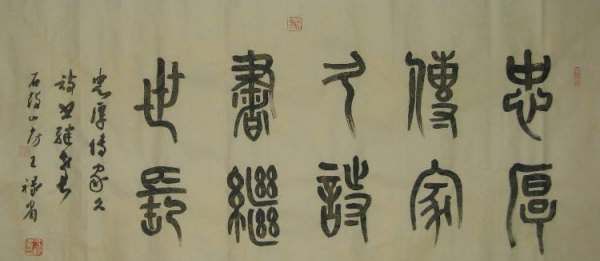 忠厚
傳家
久詩
書繼
世長
忠厚傳家久
詩書繼世長
石 山房王祿